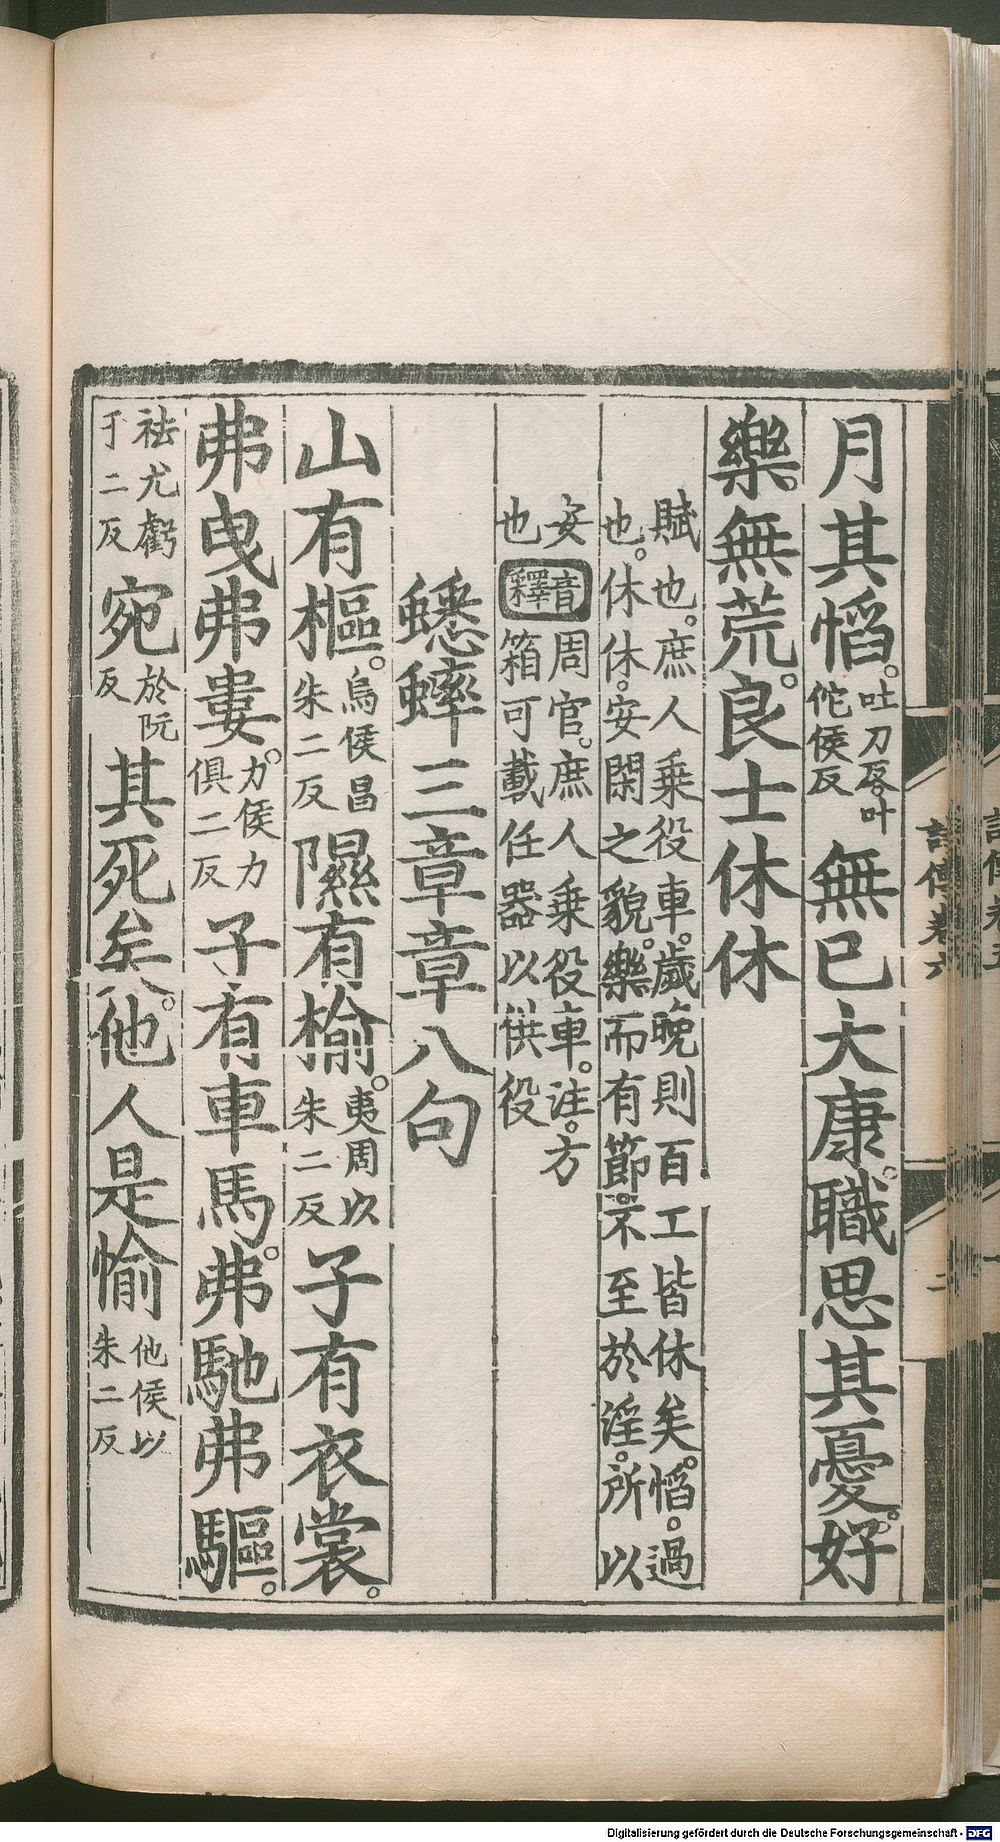 月其慆。吐刀反叶佗侯反無已大康。職思其憂。好
樂。無荒。良士休休
賦也。庶人乘役車。歲晚則百工皆休矣。慆。過
也。休休。安閑之貌。樂而有節。不至於淫。所以
安
也
音釋
周官。庶人乘役車。注。方
箱可載任器以供役
蟋蟀三章章八句
山有樞。烏侯昌朱二反隰有榆。夷周以朱二反子有衣裳。
弗曳弗婁。力侯力俱二反子有車馬。弗馳弗驅。
祛尤虧于二反宛於阮反其死矣。他人是愉他侯以朱二反
詩傳卷六
二
Digitalisierung gefördert durch die Deutsche Forschungsgemeinschaft - DFG